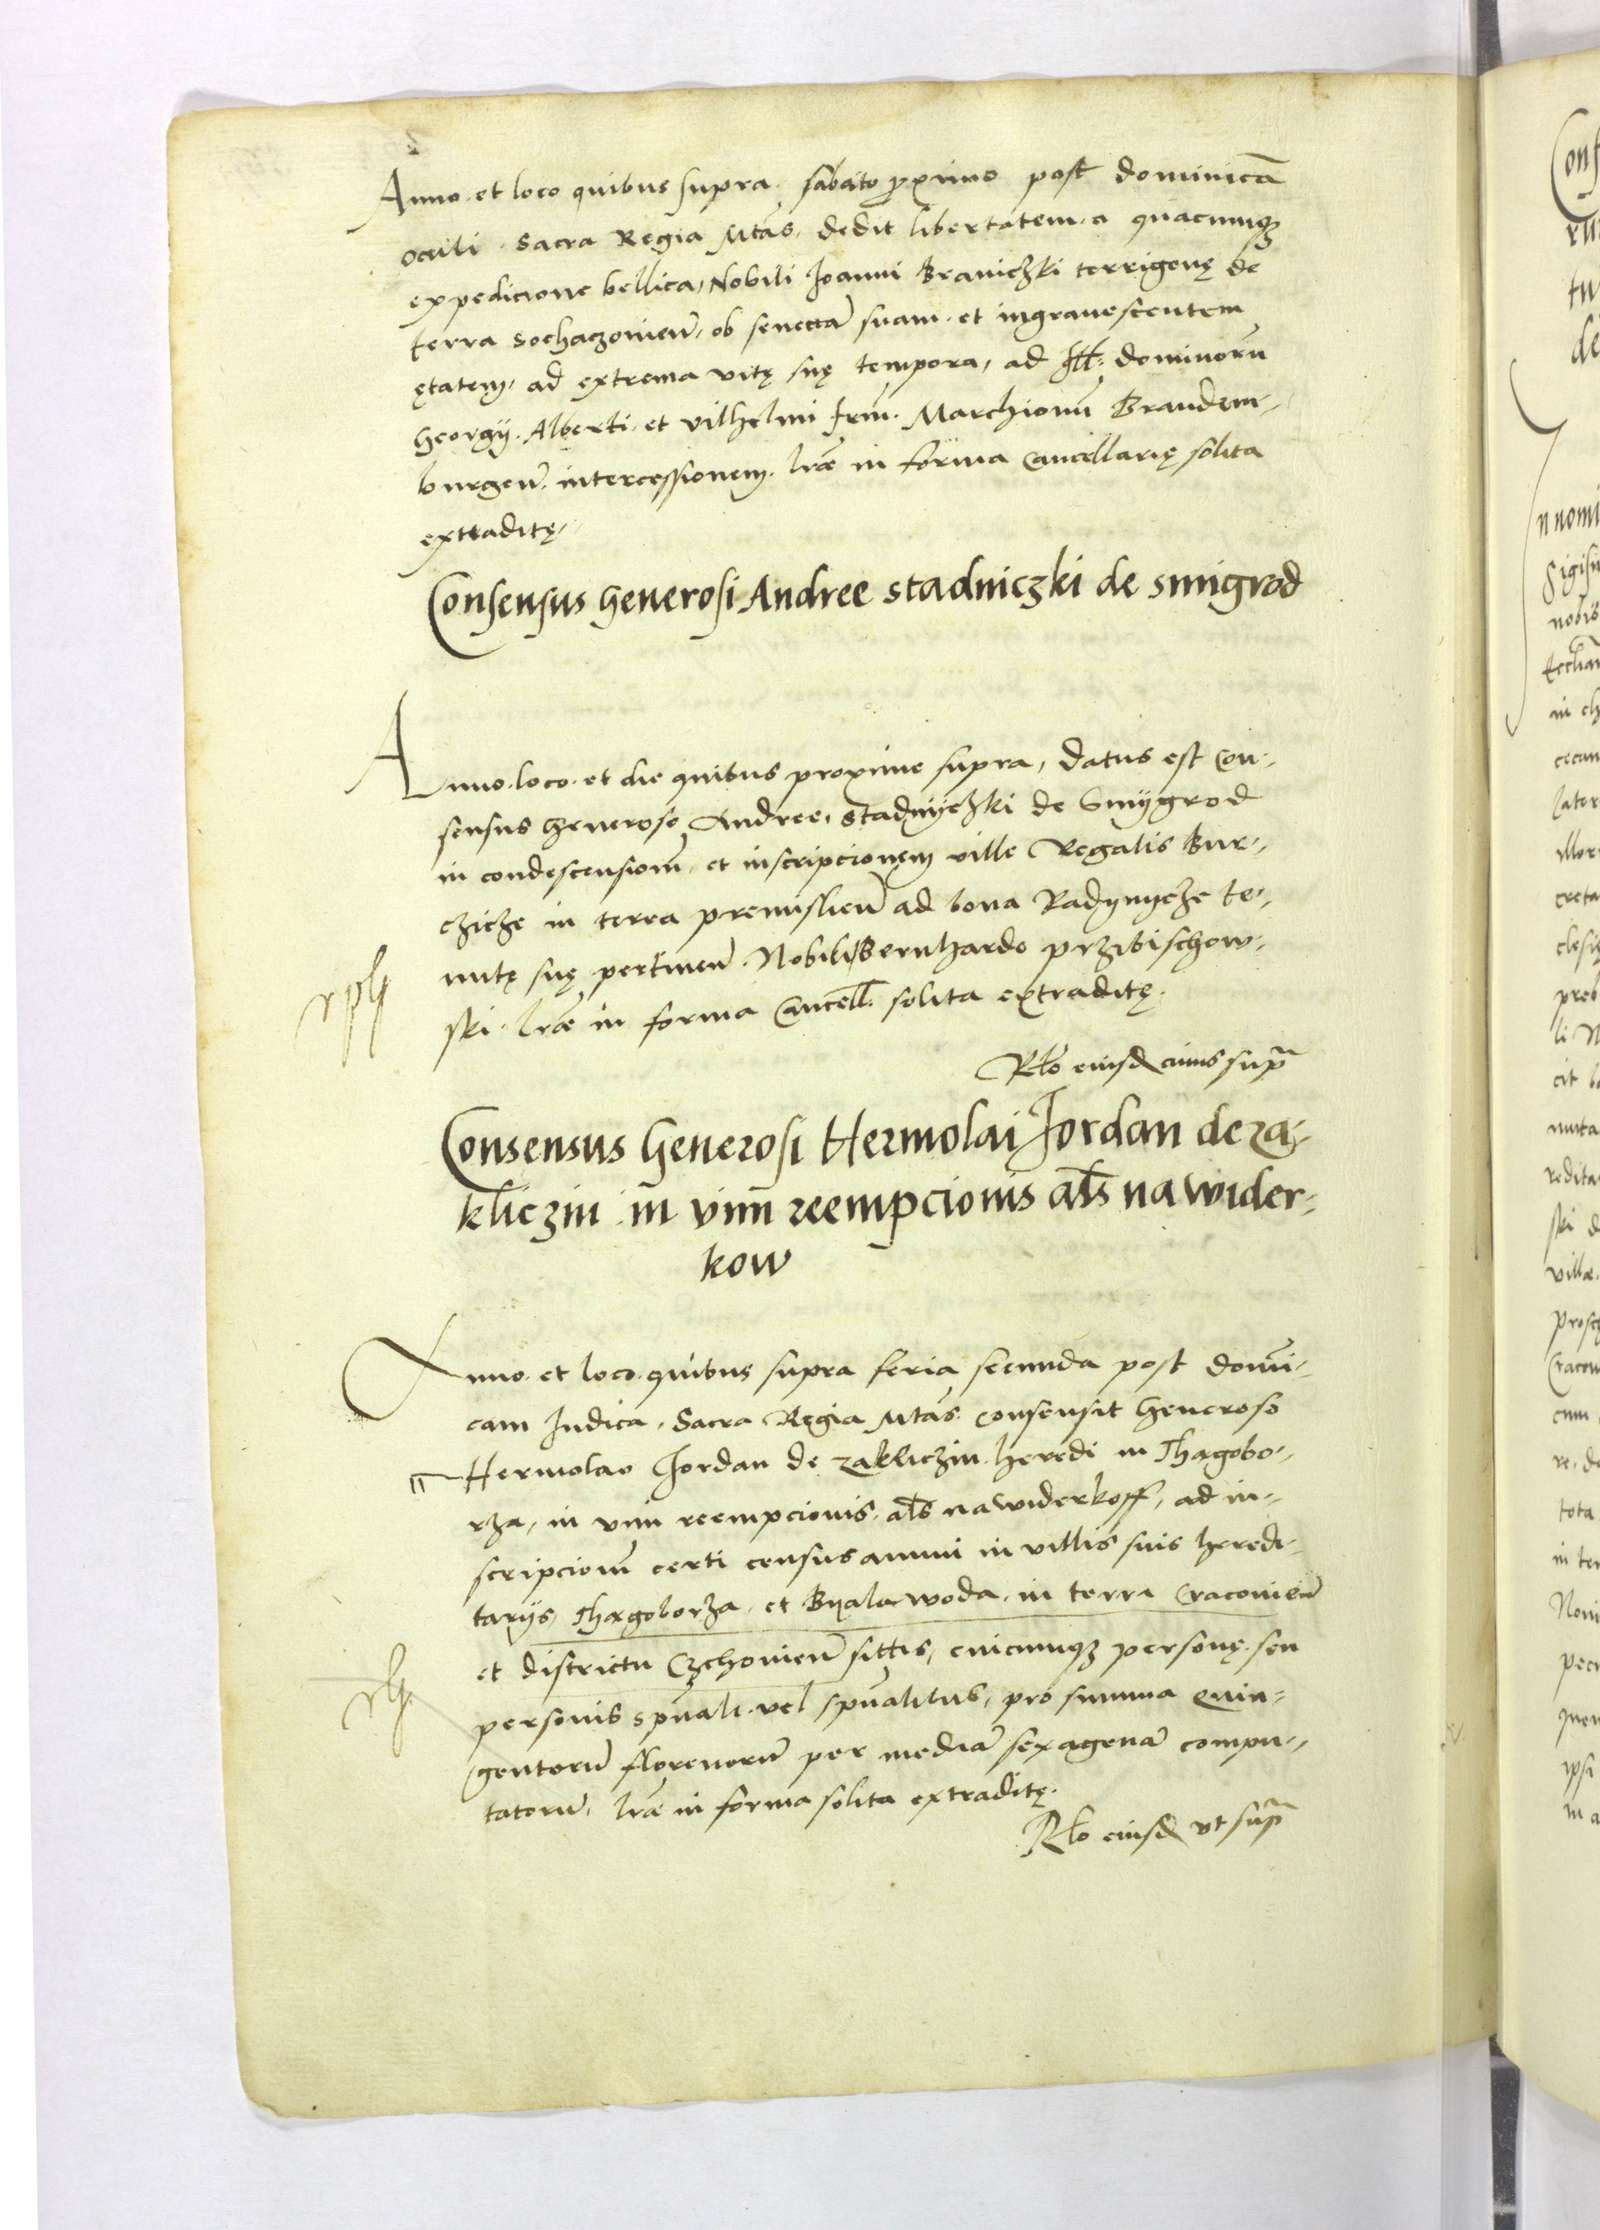 Anno et loco quibus supra sabbato proximo post dominicā
oculi. Sacra Regia Mtās, dedit libertatem a quacumqȝ
expedicione bellica, Nobili Joanni Braniczki terrigenę de
terra Sochaczovieñ, ob senectā suam et ingravescentem
ętatem, ad extrema vitę suę tempora, ad Ill: dominorū
Georgij. Alberti et Vilhelmi frm̄. Marchionū Brandem,
burgeñ. intercessionem. lr̄æ in forma Cancellarię solita
extraditę.
Consensus Generosi Andree Stadniczki de Smigrod
Anno. loco. et die quibus proxime supra, datus est Con,
sensus Generoso Andree, Stadnyczki de Smygrod
in condescensionē, et inscripcionem ville Regalis Bur,
cziche in terra premislieñ ad bona Radynycze te,
nutę suę pertineñ. Nobili Bernhardo przibischow,
ski. lr̄æ in forma Cancell: solita extraditę.
Rlō eiusd cuius supͣ
Consensus Generosi Hermolai Jordan de Za,
kliczin in vim reempcionis al̄s na wider,
kow
Anno et loco quibus supra feria secunda post domī,
cam Judica. Sacra Regia Mtās consensit Generoso
Hermolao Jordan de Zakliczin heredi in Thagobo,
rza, in vim reempcionis. al̄s na widerkoff, ad in,
scripcionē certi census annui in villis suis heredi,
tarijs, Thagoborza, et Byala woda, in terra Cracovieñ
et districtu Czchovieñ sittis, cuicumqȝ personę seu
personis spūali. vel spūalibus, pro summa quin,
gentorū florenorū per mediā sexagenā compu,
tatorū, lr̄æ in forma solita extraditę.
Rlō eiusd ut supͣ